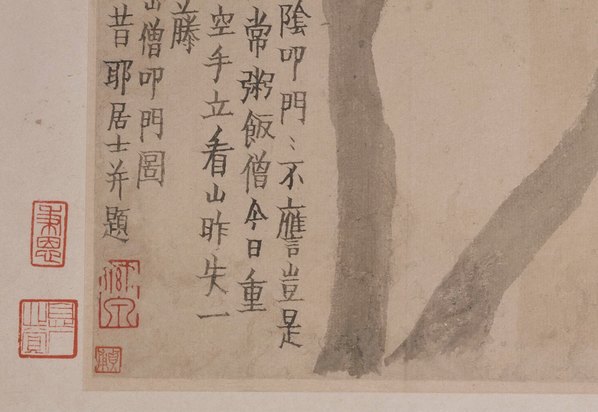 陰叩門〻不應豈是
常粥飯僧今日重
空手立看山昨失一
藤
山僧叩門圖
昔耶居士并題